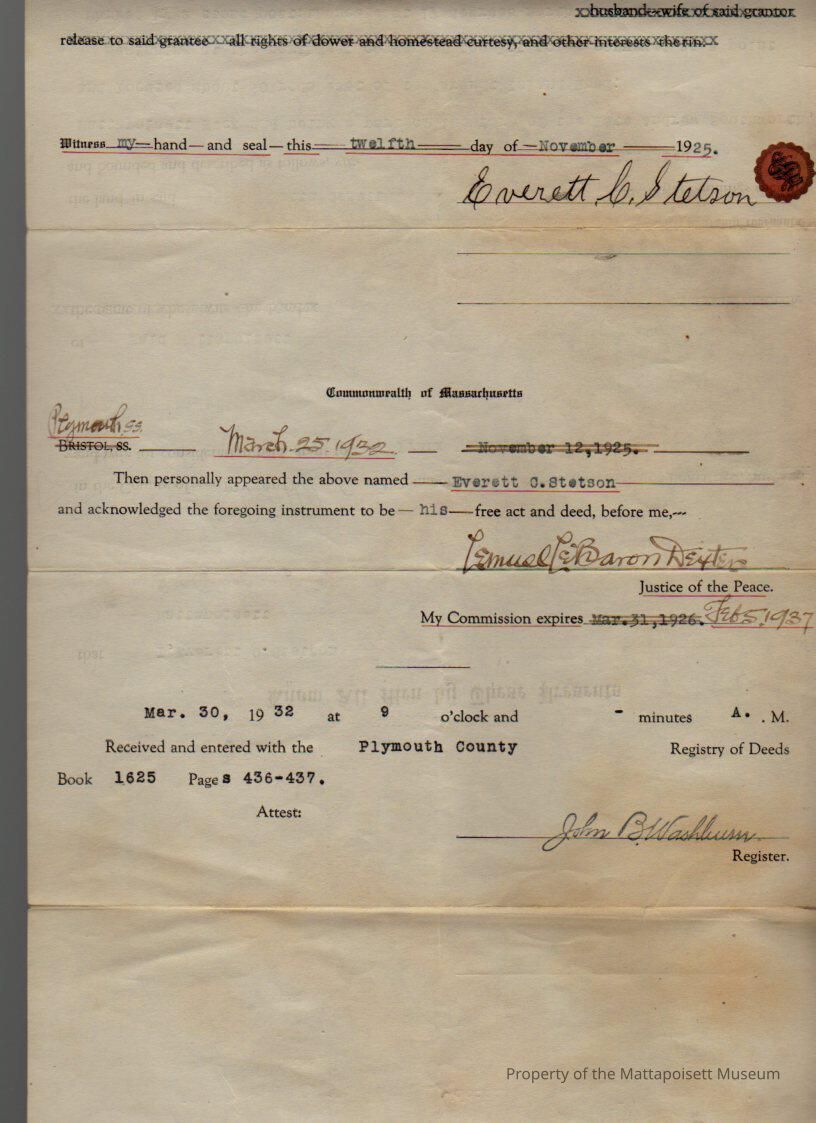 husband-wife of said grantor
release to said grantee all rights of dower and homestead curtesy, and other interests therin.
Witness my hand and seal this twelfth day of November 1925.
Everett C. Stetson
Commonwealth of Massachusetts
Plymouth, ss.
BRISTOL, SS. March 25 1932 November 12,1925.
Then personally appeared the above named Everett C.Stetson
and acknowledged the foregoing instrument to be his free act and deed, before me,
Lemuel LeBaron Dexter
Justice of the Peace.
My Commission expires Mar.31,1926. Feb 5, 1937
Mar. 30, 19 32 at 9 o'clock and - minutes A. . M.
Received and entered with the Plymouth County Registry of Deeds
Book 1625 Page s 436-437.
Attest:
John B Washburn
Register.
Property of the Mattapoisett Museum